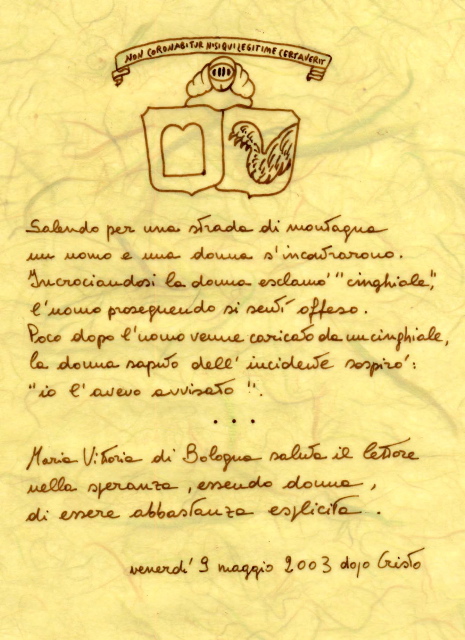 NON CORONABITUR NISI QUI LEGITIME CERTAVERIT
Salendo per una strada di montagna
un uomo e una donna s'incontrarono.
Incrociandosi la donna esclamò "cinghiale",
l'uomo proseguendo si sentì offeso.
Poco dopo l'uomo venne caricato da un cinghiale,
la donna saputo dell'incidente sospirò:
"io l'avevo avvisato".
...
Maria Vittoria di Bologna saluta il lettore
nella speranza, essendo donna,
di essere abbastanza esplicita.
venerdì 9 maggio 2003 dopo Cristo